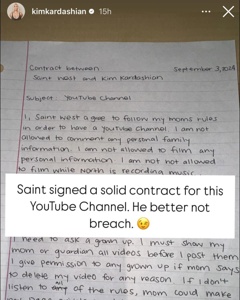 kimkardashian 15h
Contract between September 3, 2024
Saint West and Kim Kardashian
Subject: YouTube Channel
1, Saint West agree to follow my moms rules
in order to have a YouTube Channel. I am not
allowed to comment any personal family
information. I am not allowed to film any
personal information. I am not not allowed
to film while North is recording music.
Saint signed a solid contract for this
YouTube Channel. He better not
breach. 😉
I need to ask a grown up. I must show my
mom or guardian all videos before I post them
I give permission to any grown up if mom says
to delete my video for any reason. If I don't
listen to any of the rules, mom could make